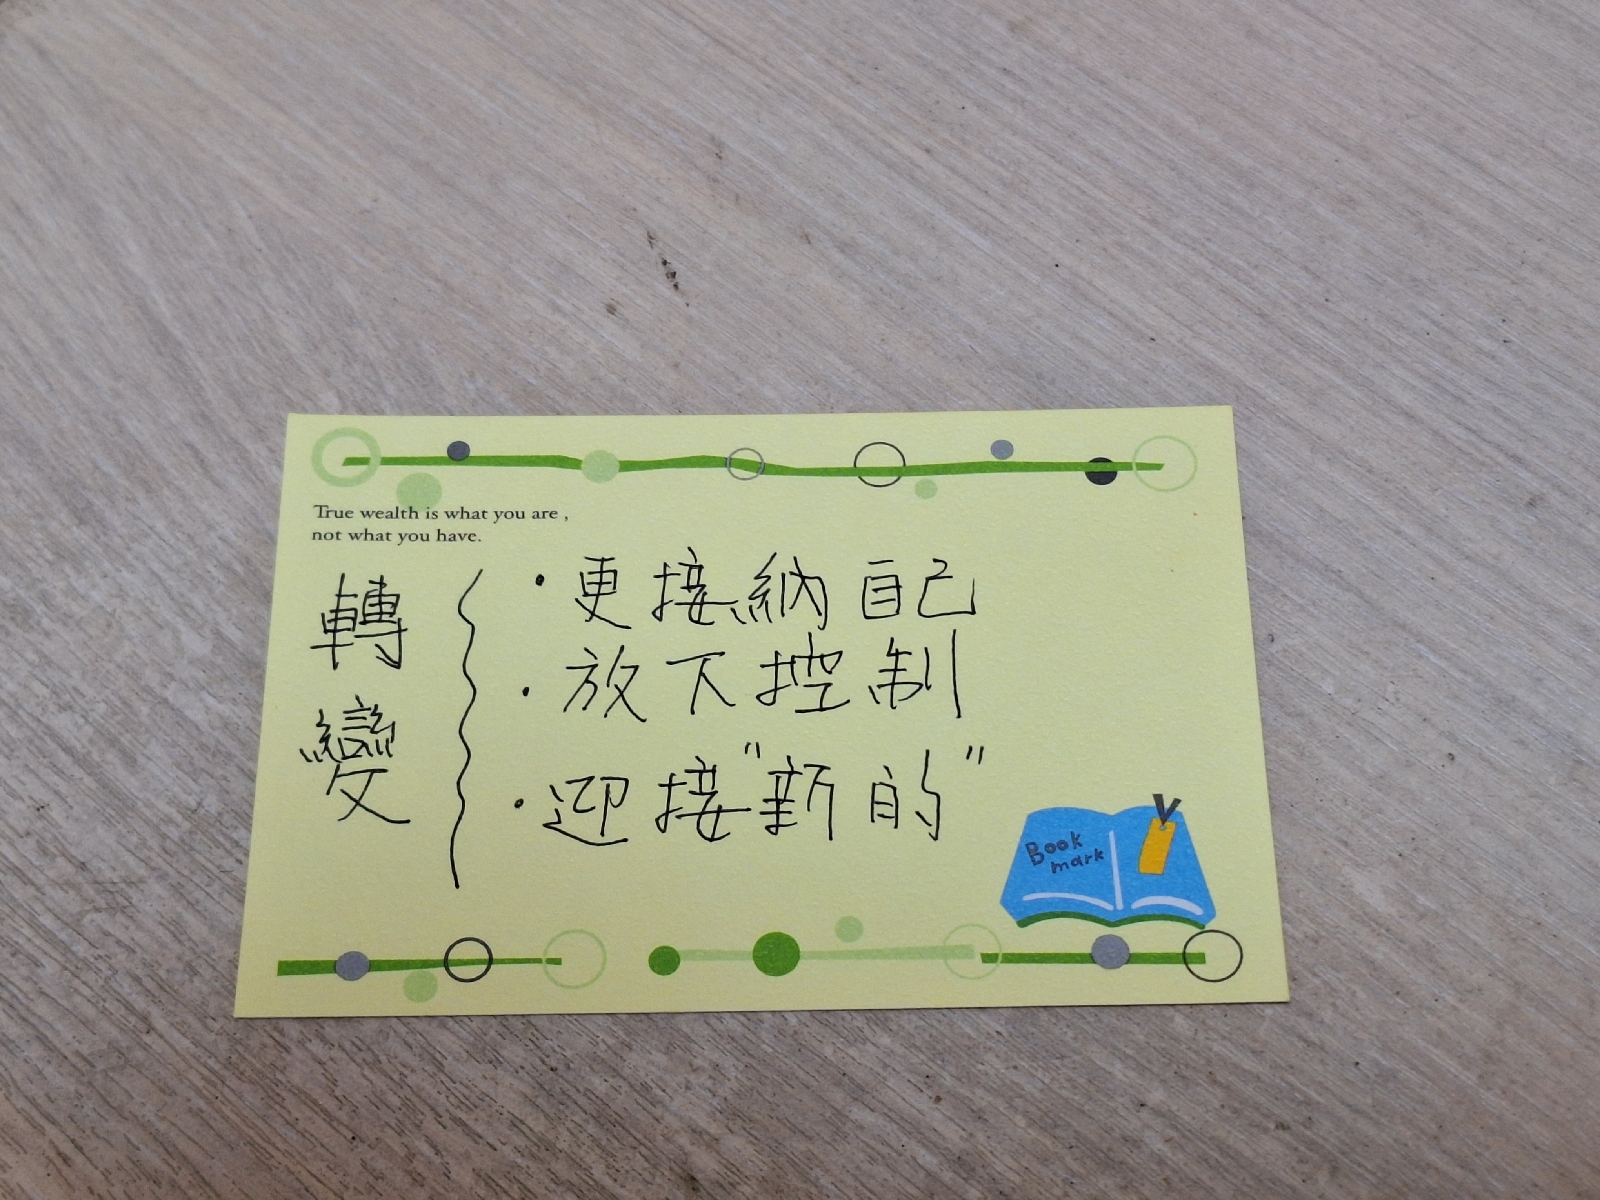 True wealth is what you are ,
not what you have.
轉
變
・更接納自己
・放下控制
・迎接"新的"
Book
mark